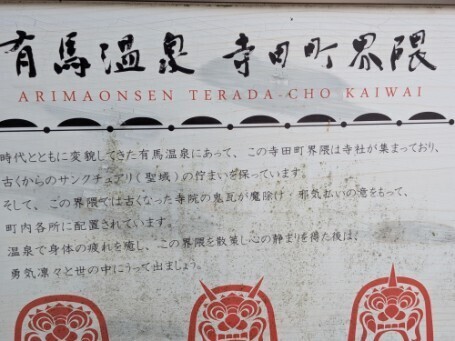 有馬温泉 寺田町界隈
ARIMAONSEN TERADA-CHO KAIWAI
時代とともに変貌してきた有馬温泉にあって、この寺田町界隈は寺社が集まっており、
古くからのサンクチュアリ(聖域)の佇まいを保っています。
そして、この界隈では古くなった寺院の鬼瓦が魔除け・邪気払いの意をもって、
町内各所に配置されています。
温泉で身体の疲れを癒し、この界隈を散策し心の静まりを得た後は、
勇気凛々と世の中にうって出ましょう。